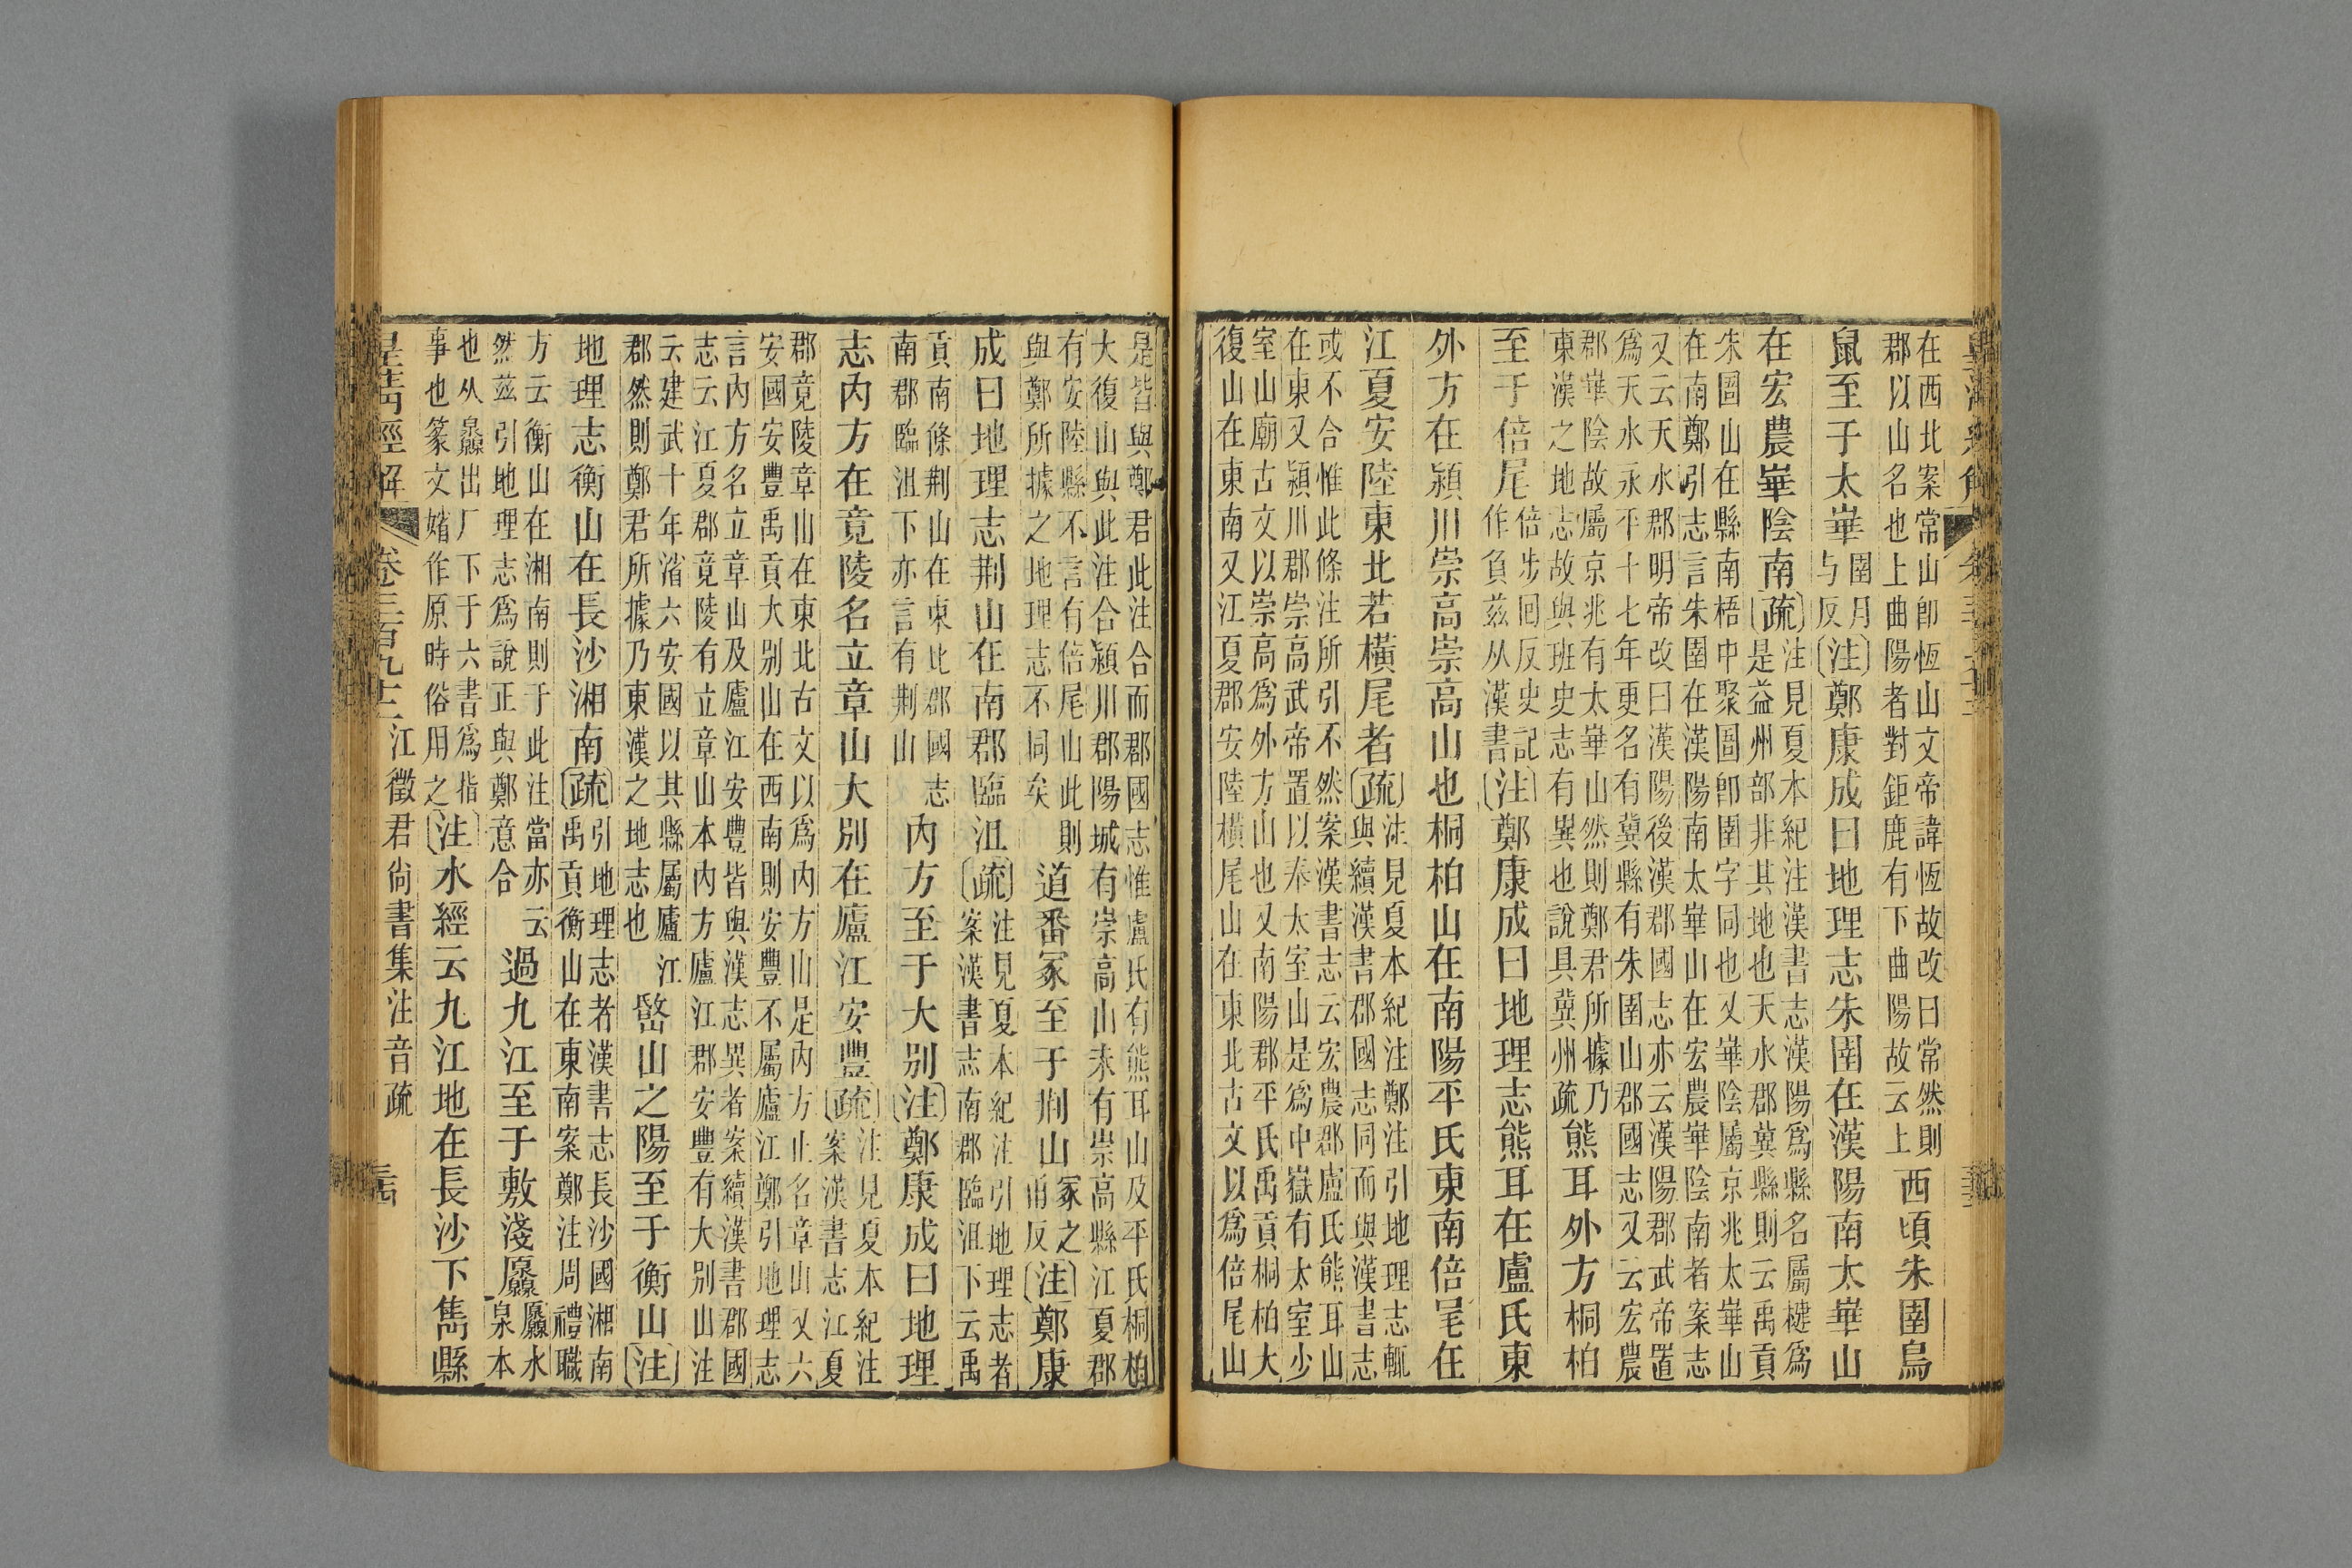 在西北案常山卽恆山文帝諱恆故改曰常然則
郡以山名也上曲陽者對鉅鹿有下曲陽故云上
西頃朱圉鳥
鼠至于太崋
圉月
与反
〔注〕鄭康成曰地理志朱圉在漢陽南太崋山
在宏農崋陰南〔疏〕
注見夏本紀注漢書志漢陽爲縣名屬楗爲
是益州部非其地也天水郡冀縣則云禹貢
朱圄山在縣南梧中聚圄卽圉字同也又崋陰屬京兆太崋山
在南鄭引志言朱圉在漢陽南太崋山在宏農崋陰南者案志
又云天水郡明帝改曰漢陽後漢郡國志亦云漢陽郡武帝置
爲天水永平十七年更名有冀縣有朱圉山郡國志又云宏農
郡崋陰故屬京兆有太崋山然則鄭君所據乃
東漢之地志故與班史志有異也說具冀州疏
熊耳外方桐柏
至于倍尾
倍步回反史記
作負茲从漢書
〔注〕鄭康成曰地理志熊耳在盧氏東
外方在潁川崇高崇高山也桐柏山在南陽平氏東南倍尾在
江夏安陸東北若橫尾者〔疏〕
注見夏本紀注鄭注引地理志輒
與續漢書郡國志同而與漢書志
或不合惟此條注所引不然案漢書志云宏農郡盧氏熊耳山
在東又潁川郡崇高武帝置以奉太室山是爲中嶽有太室少
室山廟古文以崇高爲外方山也又南陽郡平氏禹貢桐柏大
復山在東南又江夏郡安陸橫尾山在東北古文以爲倍尾山
是皆與鄭君此注合而郡國志惟盧氏有熊耳山及平氏桐柏
大復山與此注合潁川郡陽城有崇高山未有崇高縣江夏郡
有安陸縣不言有倍尾山此則
與鄭所據之地理志不同矣
道番冢至于荆山
冢之
甬反
〔注〕鄭康
成曰地理志荆山在南郡臨沮〔疏〕
注見夏本紀注引地理志者
案漢書志南郡臨沮下云禹
貢南條荆山在東北郡國志
南郡臨沮下亦言有荆山
内方至于大别〔注〕鄭康成曰地理
志内方在竟陵名立章山大別在廬江安豐〔疏〕
注見夏本紀注
案漢書志江夏
郡竟陵章山在東北古文以爲内方山是内方止名章山又六
安國安豐禹貢大别山在西南則安豐不屬廬江鄭引地理志
言内方名立章山及廬江安豐皆與漢志異者案續漢書郡國
志云江夏郡竟陵有立章山本内方廬江郡安豐有大别山注
云建武十年渻六安國以其縣屬廬江
郡然則鄭君所據乃東漢之地志也
山之陽至于衡山〔注〕
地理志衡山在長沙湘南〔疏〕
引地理志者漢書志長沙國湘南
禹貢衡山在東南案鄭注周禮職
方云衡山在湘南則于此注當亦云
然茲引地理志爲說正與鄭意合
過九江至于敷淺厵
厵水
泉本
也从灥出厂下于六書爲指
事也篆文媘作原時俗用之
〔注〕水經云九江地在長沙下雋縣
皇清經解 卷三百九十二 江徵君尙書集注音疏